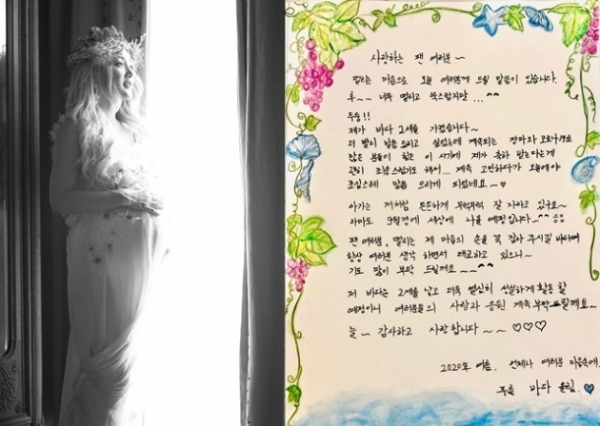 사랑하는 팬 여러분~
떨리는 마음으로 오늘 여러분께 드릴 말씀이 있습니다.
후~~ 너무 떨리고 쑥스럽지만...^^
두둥!!
제가 바다 2세를 가졌습니다~
더 빨리 말씀 드리고 싶었는데 계속되는 장마와 코로나로
많은 분들이 힘든 이 시기에 제가 축하 받는다는게
괜히 조심스럽기도 해서... 계속 고민하다가 오늘에야
조심스레 말씀 드리게 되었네요~♥
아가는 저처럼 튼튼하게 무럭무럭 잘 자라고 있구요~
아마도 9월경에 세상에 나올 예정입니다~^^
팬 여러분, 떨리는 제 마음의 손을 꼭 잡아 주시길 바라며
항상 여러분 생각 하면서 태교하고 있으니~
기도 많이 부탁 드릴께요~~^^
저 바다는 2세를 낳고 더욱 열심히 성실하게 활동 할
예정이니 여러분들의 사랑과 응원 계속 부탁드릴께요~
늘~ 감사하고 사랑합니다~~♡♡♡
2020年 여름. 언제나 여러분 마음속에.
푸른 바다 올림.♥